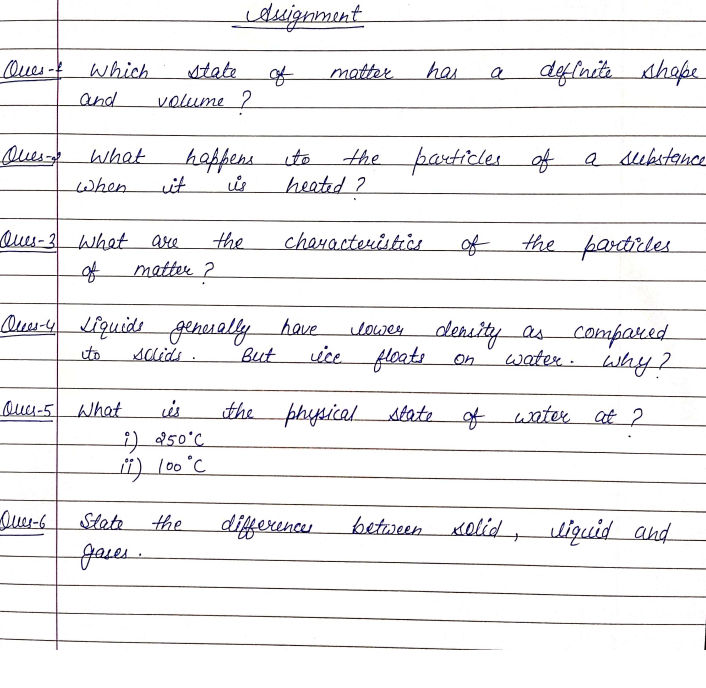 Assignment
Ques-1 Which state of matter has a definite shape
and volume ?
Ques-2 What happens to the particles of a substance
when it is heated ?
Ques-3 What are the characteristics of the particles
of matter ?
Ques-4 Liquids generally have lower density as compared
to solids. But ice floats on water. Why ?
Ques-5 What is the physical state of water at ?
i) 250°C
ii) 100°C
Ques-6 State the differences between solid, liquid and
gases.